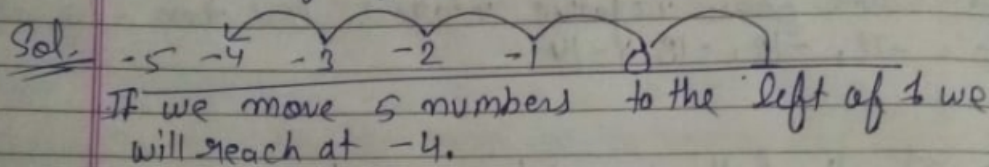 Sol. -5 -4 -3 -2 -1 0 1
If we move 5 numbers to the left of 1 we
will reach at -4.